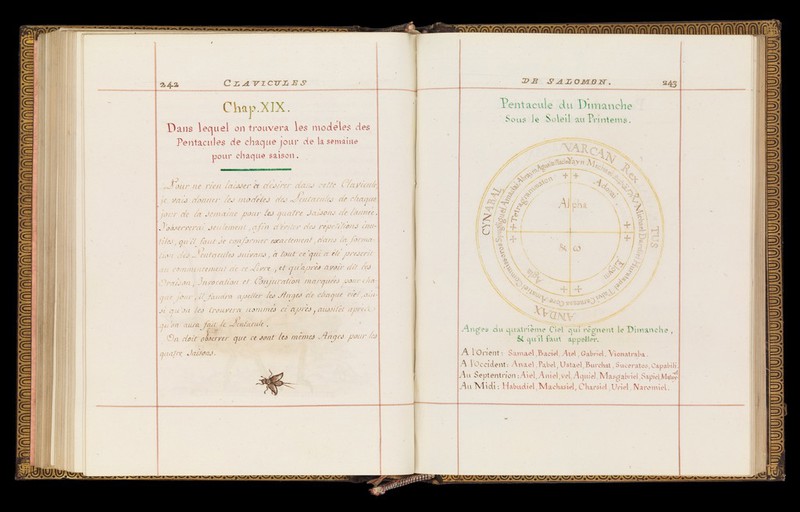 242 CLAVICULES
Chap. XIX.
Dans lequel on trouvera les modéles des
Pentacules de chaque jour de la semaine
pour chaque saison.
Pour ne rien laisser à désirer dans cette Clavicule,
je vais donner les modéles des Pentacules de chaque
jour de la semaine pour les quatre saisons de l'année.
J'observerai seulement, afin d'éviter des repetitions inu-
tiles, qu'il faut se conformer exactement, dans la forma-
tion des Pentacules suivans, à tout ce qui a été prescrit
au commencement de ce Livre, et qu'après avoir dit les
Oraison, Invocation et Conjuration marquées pour cha-
que jour, il faudra apeller les Anges de chaque ciel ain-
si qu'on les trouvera nommés ci après, aussitôt après
qu'on aura fait le Pentacule.
On doit observer que ce sont les mêmes Anges pour les
quatre Saisons.
DE SALOMON. 243
Pentacule du Dimanche
Sous le Soleil au Printems.
VARCAN REX
TUS
ANDAS
CYNABAL
Tetragrammaton
Adonai
Agla
Alpha
& ω
Anges du quatriéme Ciel qui régnent le Dimanche,
& qu'il faut appeller.
A l'Orient: Samael, Baciel, Atel, Gabriel, Vionatraba.
A l'Occident: Anael, Pabel, Ustael, Burchat, Suceratos, Capabili.
Au Septentrion: Aiel, Aniel, vel, Aquiel, Masgabriel, Sapiel, Matuyel.
Au Midi: Habudiel, Machasiel, Charsiel, Uriel, Naromiel.